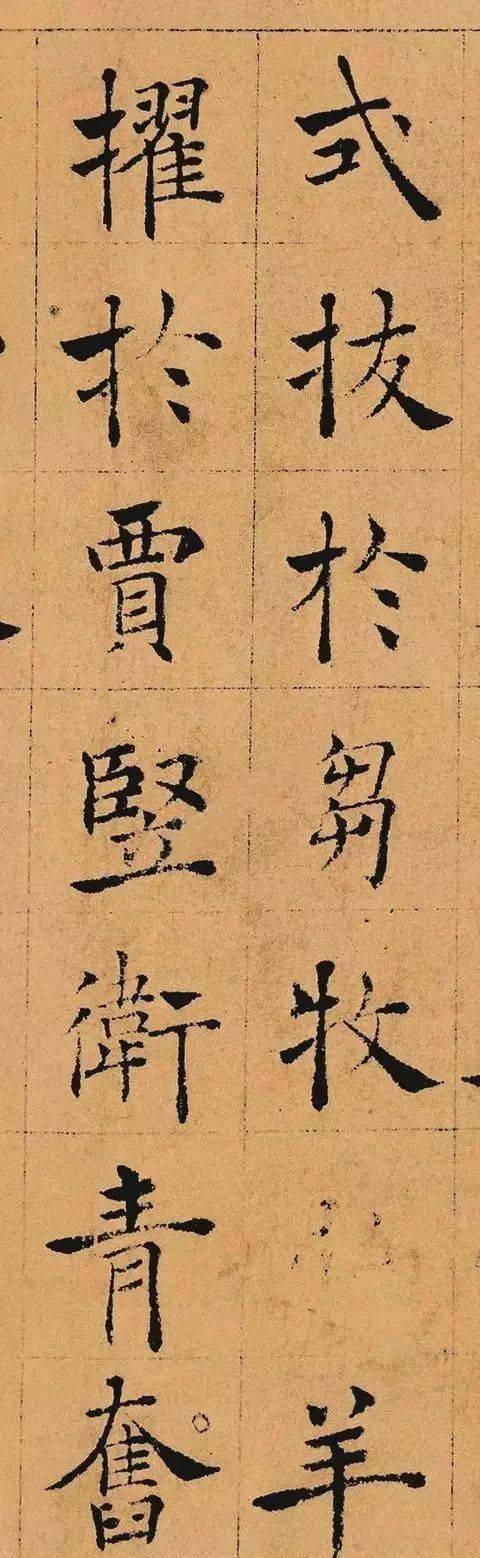 式拔於芻牧羊
擢於賈竪衛青奮